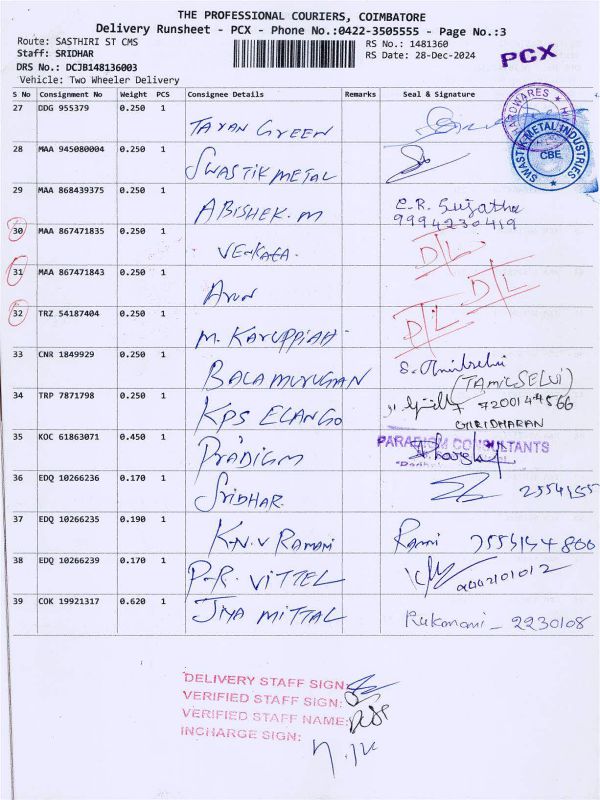 THE PROFESSIONAL COURIERS, COIMBATORE
Delivery Runsheet - PCX - Phone No.:0422-3505555 - Page No.:3
Route: SASTHIRI ST CMS
Staff: SRIDHAR
DRS No.: DCJB148136003
Vehicle: Two Wheeler Delivery
RS No.: 1481360
RS Date: 28-Dec-2024
PCX
S No Consignment No Weight PCS Consignee Details Remarks Seal & Signature
27 DDG 955379 0.250 1
TARAN GREEN
HARDWARES
28 MAA 945080004 0.250 1
SWASTIK METAL
SWASTIK METAL INDUSTRIES
CBE
29 MAA 868439375 0.250 1
ABISHEK. M
C.R. Sujatha
9994230419
30 MAA 867471835 0.250 1
VENKATA
D/L
31 MAA 867471843 0.250 1
Arun
D/L
32 TRZ 54187404 0.250 1
M. KARUPPIAH
D/L
33 CNR 1849929 0.250 1
BALAMURUGAN
(TAMILSELVI)
34 TRP 7871798 0.250 1
KPS ELANGO
7200144566
GIRIDHARAN
35 KOC 61863071 0.450 1
PRADIGM
PARADIGM CONSULTANTS
36 EDQ 10266236 0.170 1
SRIDHAR
2554155
37 EDQ 10266235 0.190 1
K.N.V RAMANI
Rammi
38 EDQ 10266239 0.170 1
P.R. VITTEL
39 COK 19921317 0.620 1
JIYA MITTAL
Rukmani - 2230108
DELIVERY STAFF SIGN:
VERIFIED STAFF SIGN:
VERIFIED STAFF NAME:
INCHARGE SIGN: